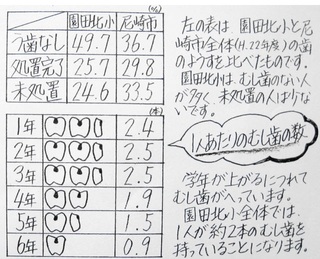 (%)
園田北小 尼崎市
う歯なし 49.7 36.7
処置完了 25.7 29.8
未処置 24.6 33.5
左の表は、園田北小と尼
崎市全体(H.22年度)の歯
のようすを比べたものです。
園田北小は、むし歯のない人
が多く、未処置の人は少な
いです。
1人あたりのむし歯の数
(本)
1年 2.4
2年 2.5
3年 2.5
4年 1.9
5年 1.5
6年 0.9
学年が上がるにつれて
むし歯がへっています。
園田北小全体では、
1人が約2本のむし歯を
持っていることになります。